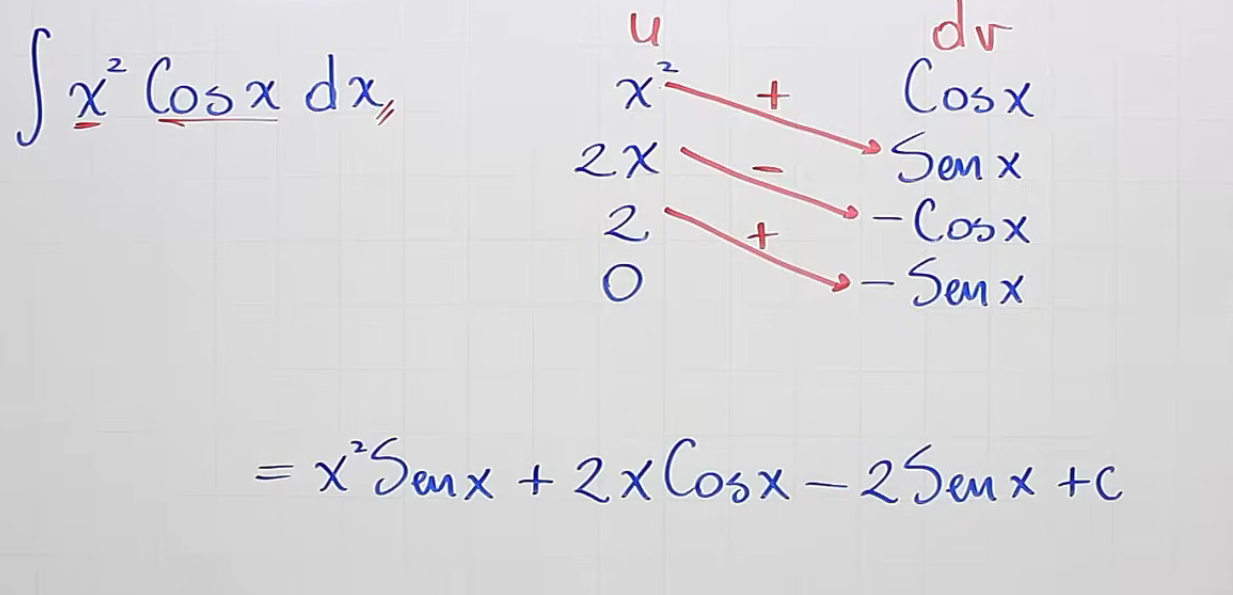 ∫ x² Cosx dx,,
u dv
x² + Cosx
2x − Senx
2 + −Cosx
0 −Senx
= x²Senx + 2xCosx − 2Senx + c